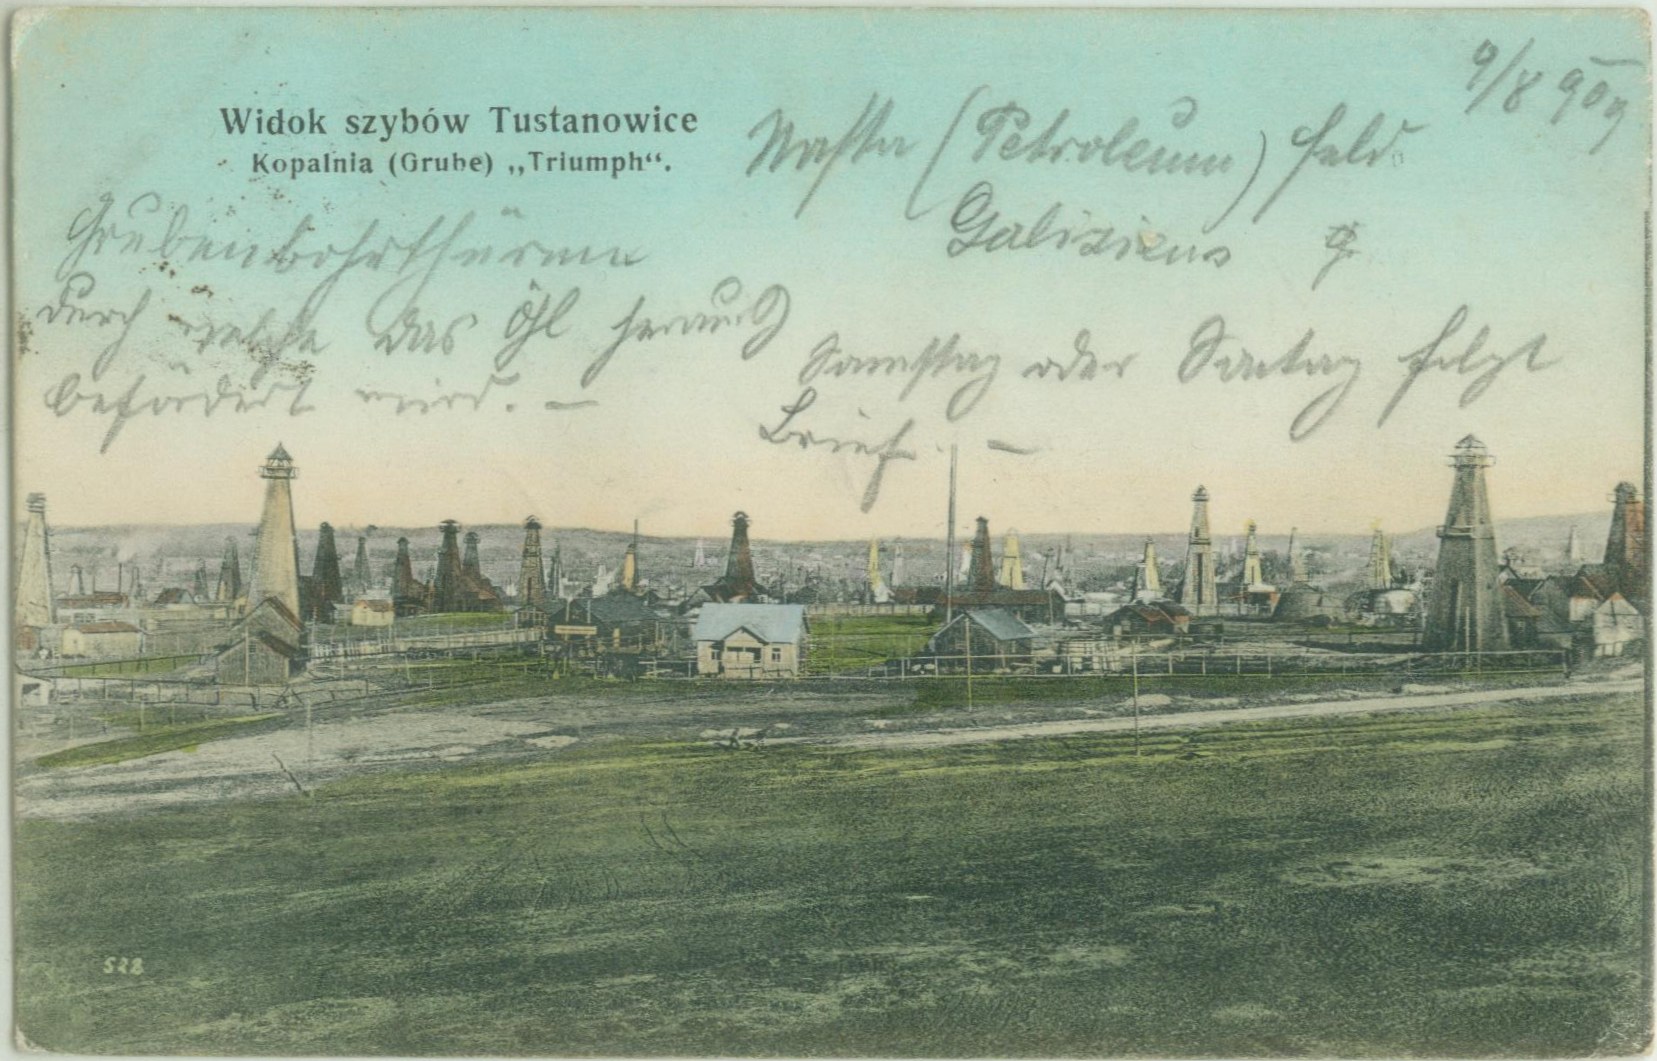 Widok szybów Tustanowice
Kopalnia (Grube) „Triumph“.
9/8 909
Nafta (Petroleum) feld
Galiziens
Grubenbohrthürme
durch welche das Öhl heraus
befördert wird. —
Samstag oder Sontag folgt
Brief. —
522